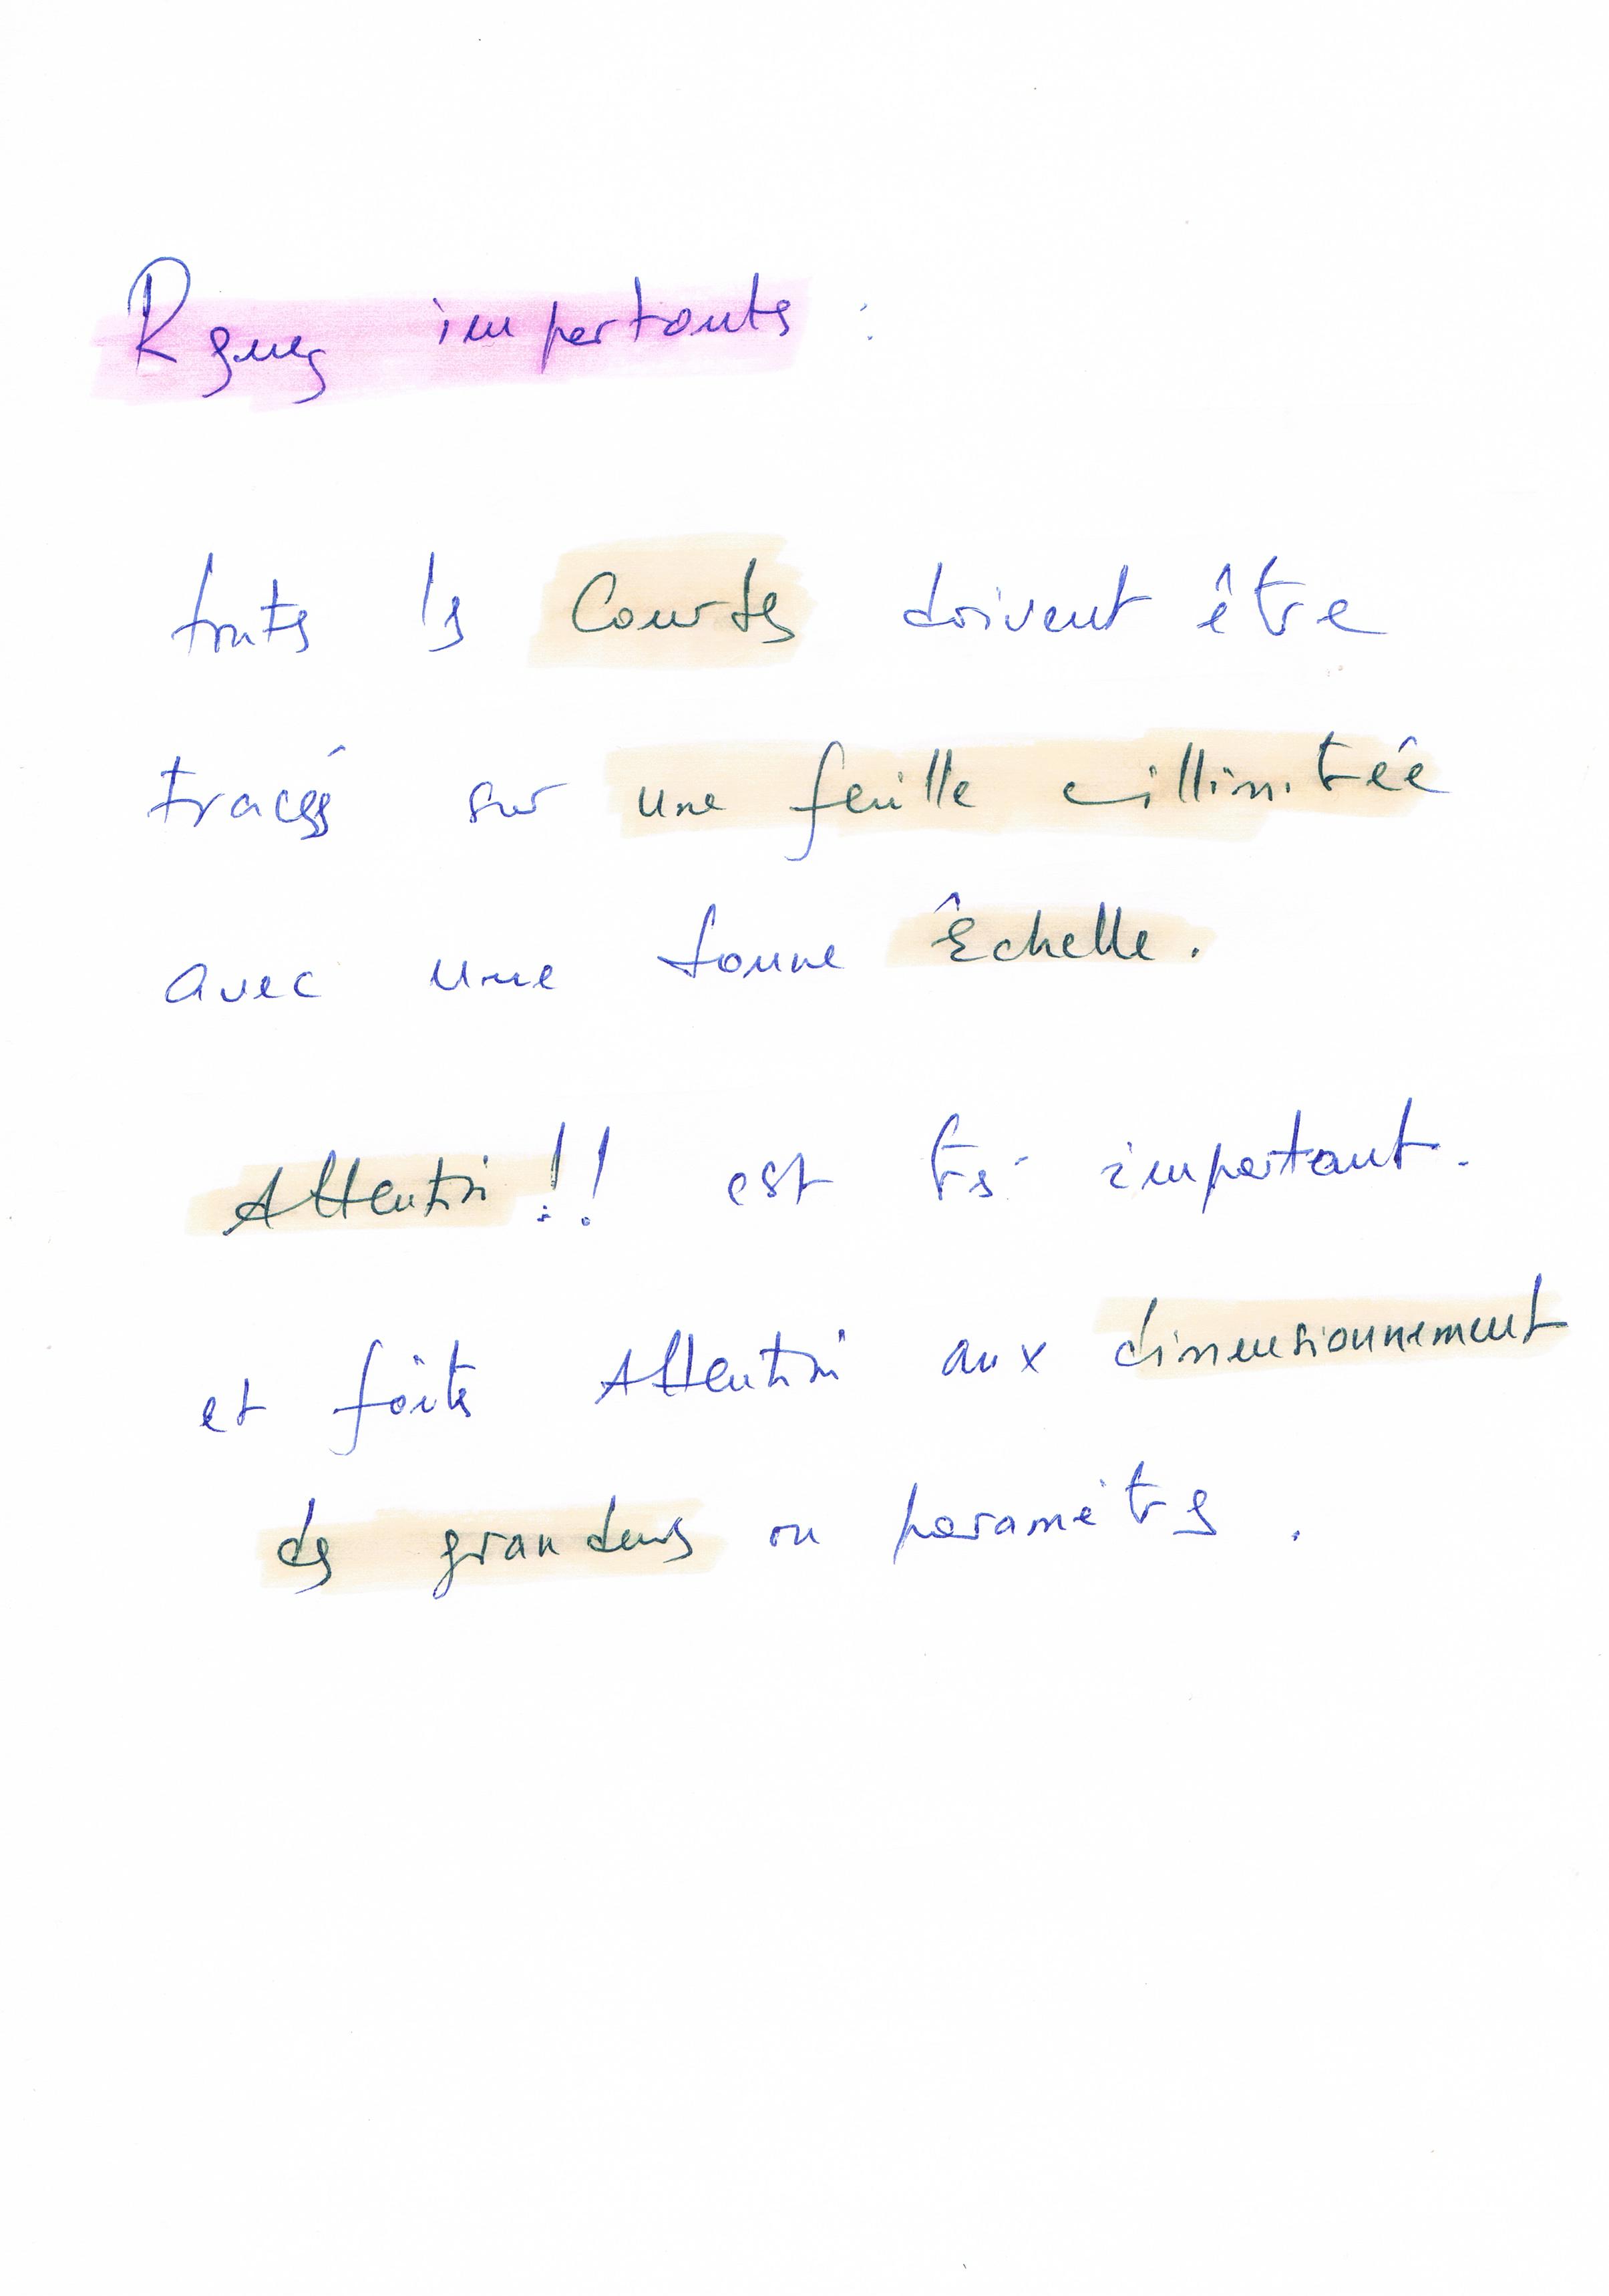 Rques importants :
toutes les Courbes doivent être
tracés sur une feuille millimitrée
avec une bonne Échelle.
Attention !! est très important.
et faites Attention aux dimensionnement
des grandeurs ou paramètres .